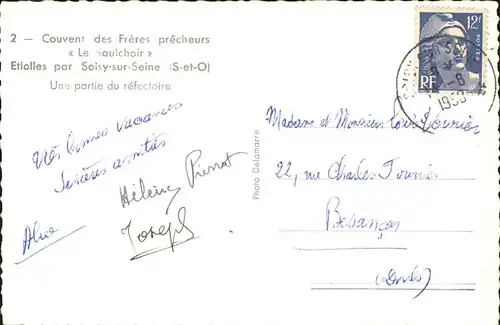 2 — Couvent des Frères prêcheurs
« Le Saulchoir »
Etiolles par Soisy-sur-Seine (S-et-O)
Une partie du réfectoire
12F
POSTES
RF
Photo Delamarre
Vos bonnes vacances
Sincères amitiés
Hélène Pierrot
Joseph
Madame et Monsieur Louis
22, rue Charles
Besançon
(Doubs)